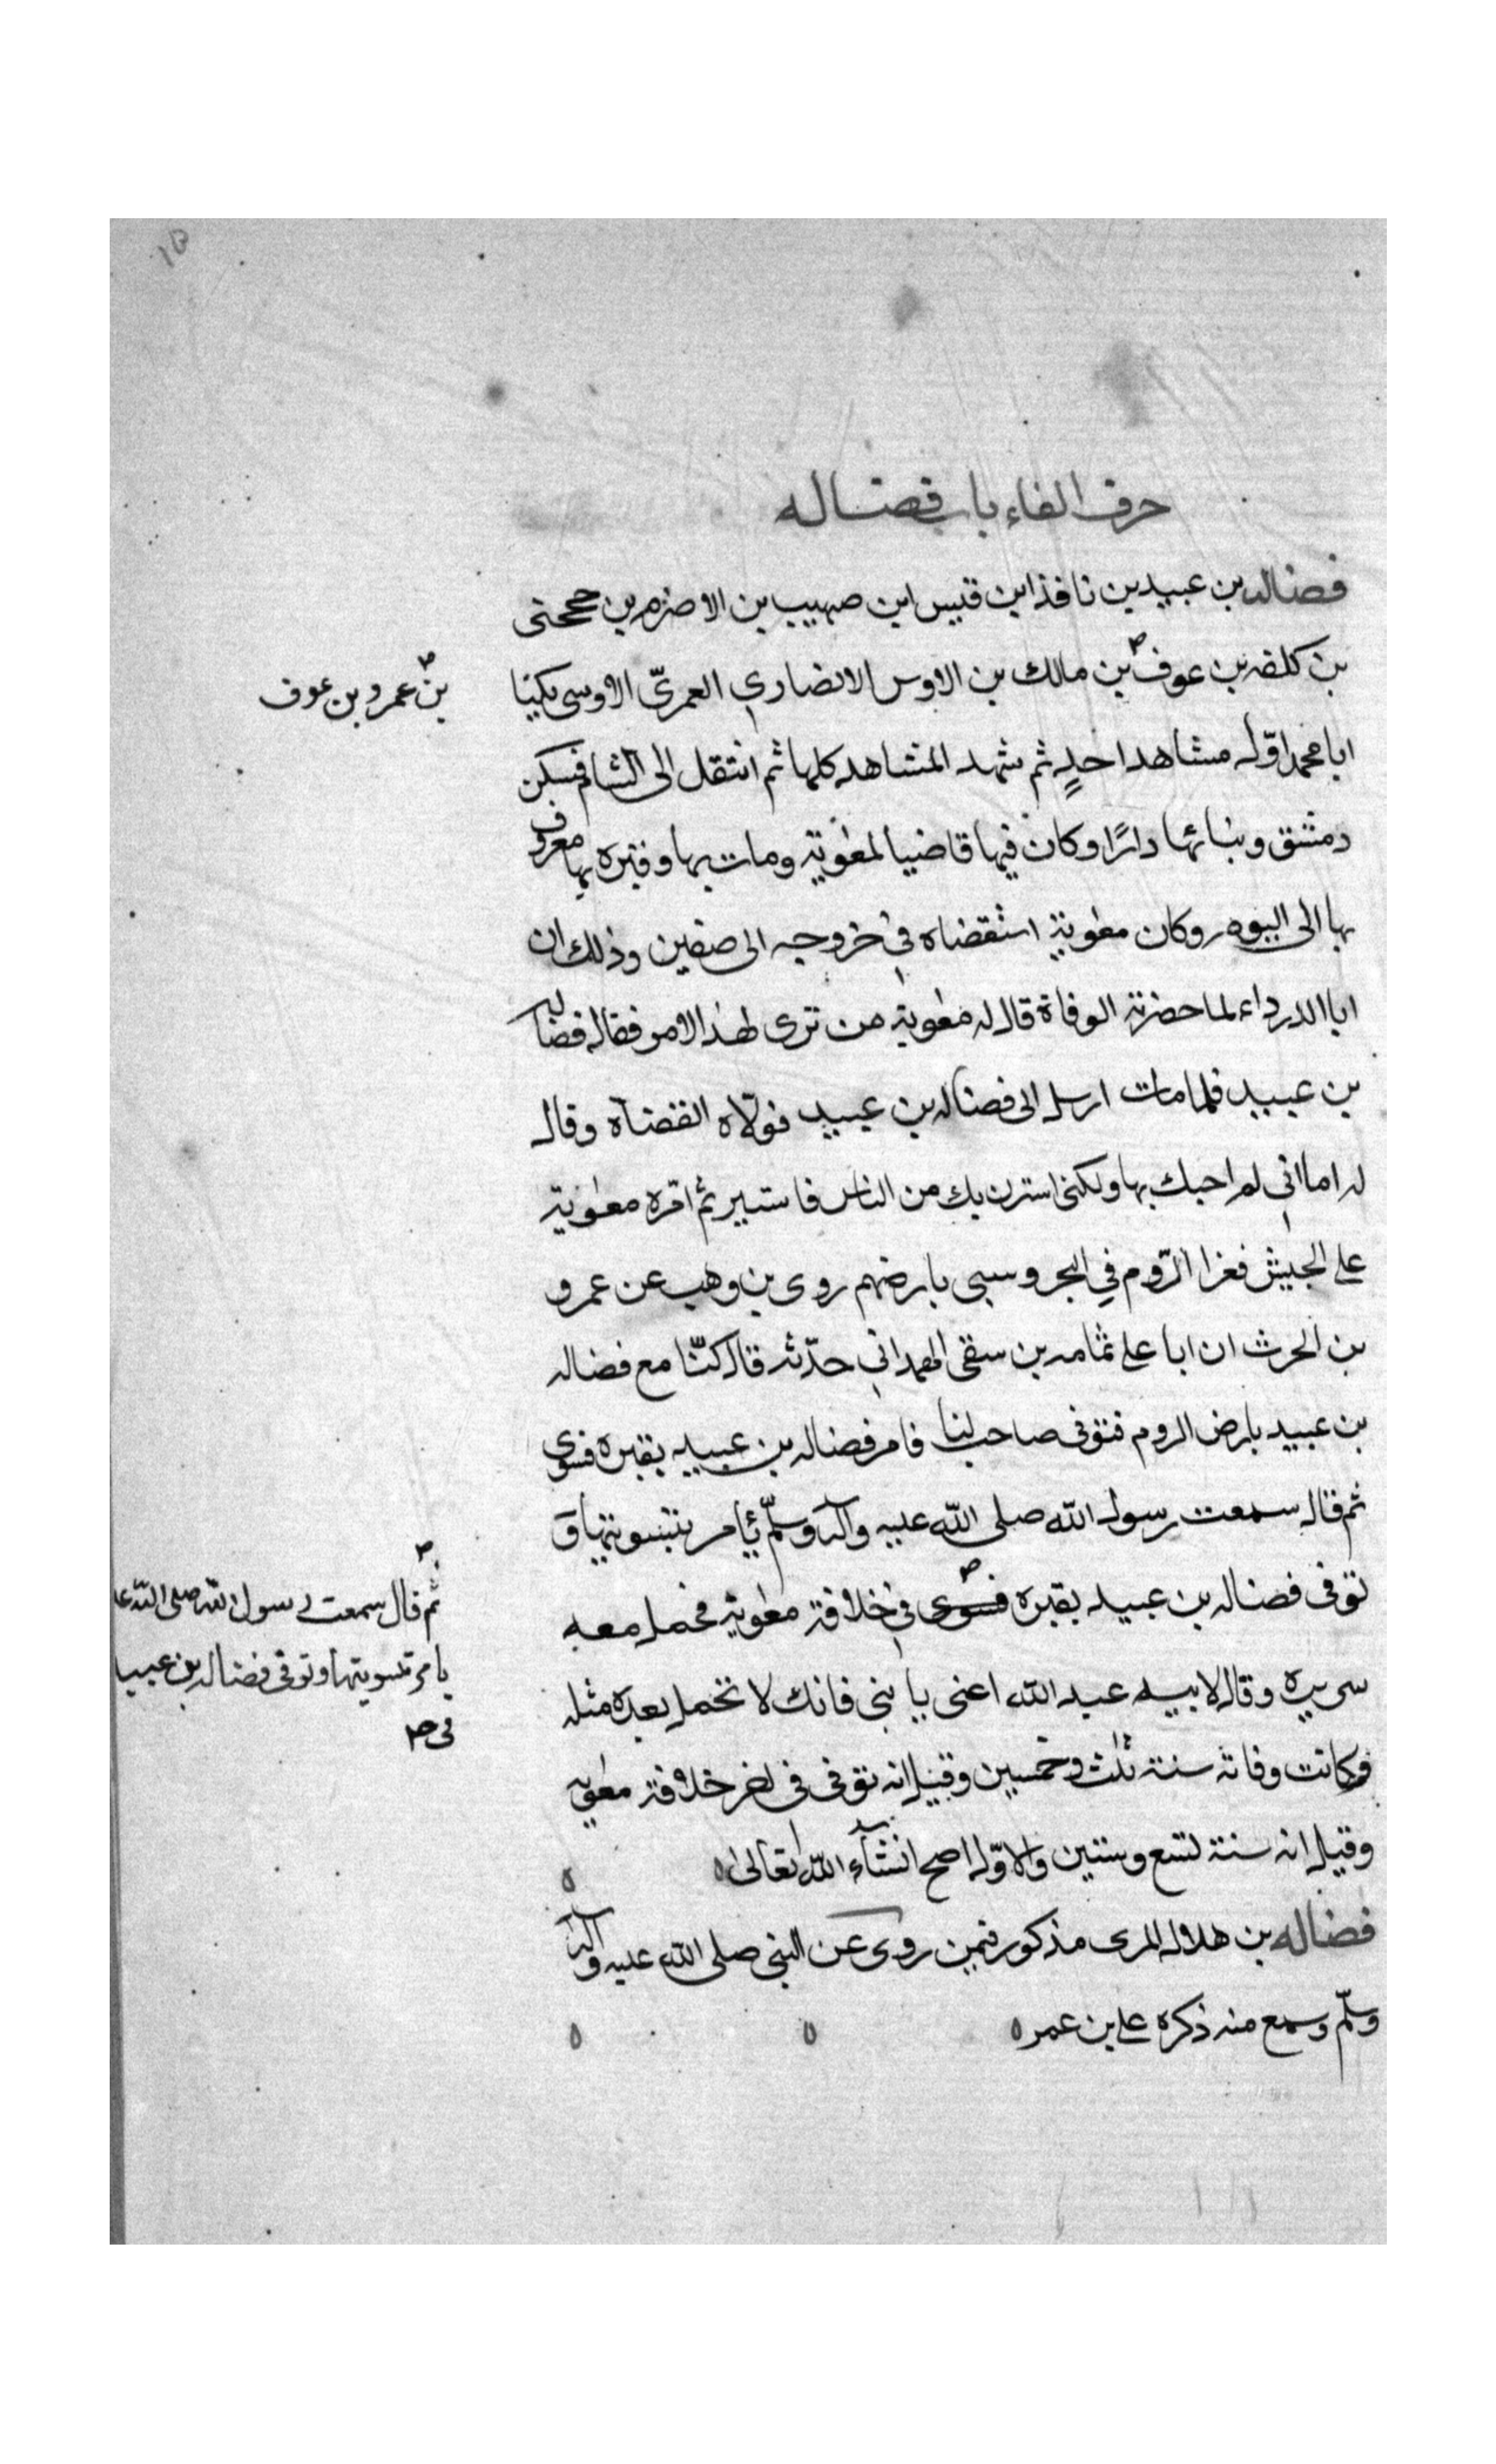 حرف الفاء باب فضاله
فضاله بن عبيد بن نافذ ابن قيس ابن صهيب بن الاصرم بن جحجبى
بن كلفه بن عوف بن مالك بن الاوس الانصاري العمريّ الاوسى يكنا
بن عمرو بن عوف
ابا محمد اوّل مشاهد احدٍ ثم شهد المشاهد كلها ثم انتقل الى الشام فسكن
دمشق وبنا بها دارًا وكان فيها قاضيا لمعوية ومات بها وقبره بها معروف
بها الى اليوم وكان معوية استقضاه في خروجه الى صفين وذلك ان
ابا الدرداء لما حضرته الوفاة قال له معوية من ترى لهذا الامر فقال فضاله
بن عبيد فلما مات ارسل الى فضاله بن عبيد فولّاه القضاة وقال
له اما انى لم احبك بها ولكنى استرت بك من الناس فاستير ثم اقره معوية
على الجيش فغزا الرّوم في البحر وسبى بارضهم روى بن وهب عن عمرو
بن الحرث ان ابا على ثمامه بن سقى الهمدانى حدّثه قال كنّا مع فضاله
بن عبيد بارض الروم فتوفى صاحب لنا فامر فضاله بن عبيد بقبره فسوى
ثم قال سمعت رسول الله صلى الله عليه وآله وسلّم يأمر بتسويتها ق
توفى فضاله بن عبيد بقبره فسوى في خلافة معوية فحمل معه
ثم قال سمعت رسول الله صلى الله عل
يامر بتسويتها وتوفى فضاله بن عبيد
فى
سريره وقال لابيه عبد الله اعنى يا بنى فانك لا تحمل بعده مثله
فوكانت وفاته سنة ثلث وخمسين وقيل انه توفى فى اخر خلافة معويه
وقيل انه سنة تسع وستين والاوّل اصح انشآء الله تعالى ه ه
فضاله بن هلال المرى مذكور فيمن روى عن النبى صلى الله عليه وآله
وسلّم وسمع منه ذكره على بن عمر ه ه ه